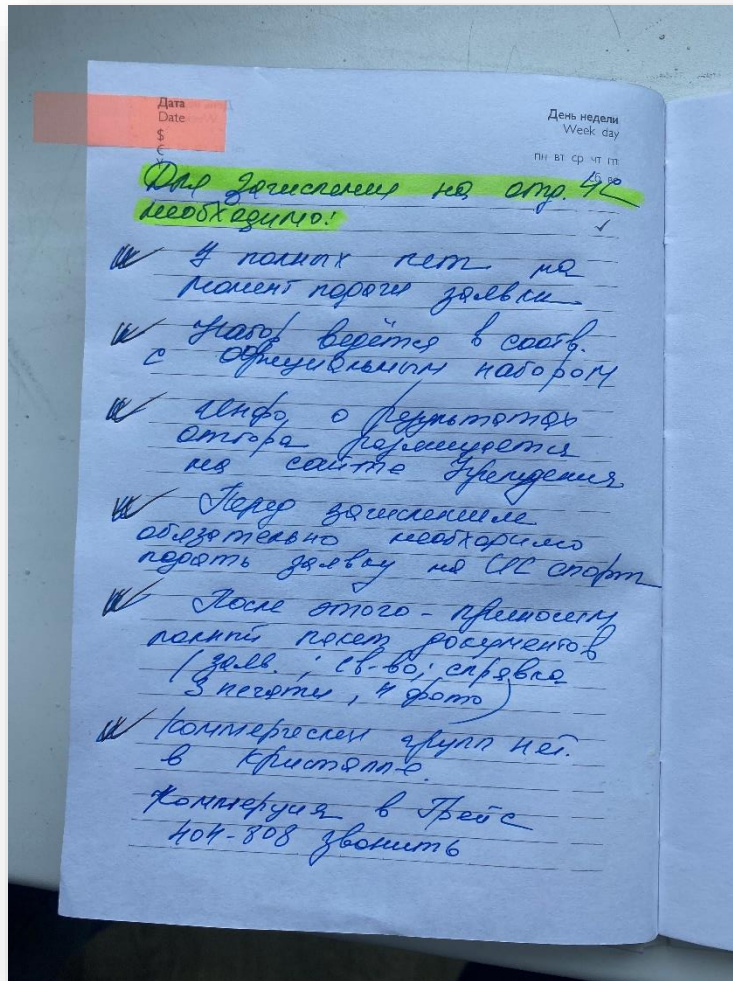 Дата
Date
$
€
День недели
Week day
пн вт ср чт пт
сб вс
Для зачисления на отд.
необходимо!
полных лет на
момент подачи заявки
Набор ведётся в соотв.
с официальным набором
Инфо о результатах
отбора размещается
на сайте Учреждения
Перед зачислением
обязательно необходимо
подать заявку на спорт
После этого - приносим
полный пакет документов
(заяв.; св-во; справка
3 печати, 4 фото)
Коммерческ групп нет.
в Кристалле.
Коммерция в Грейс
404-808 звонить